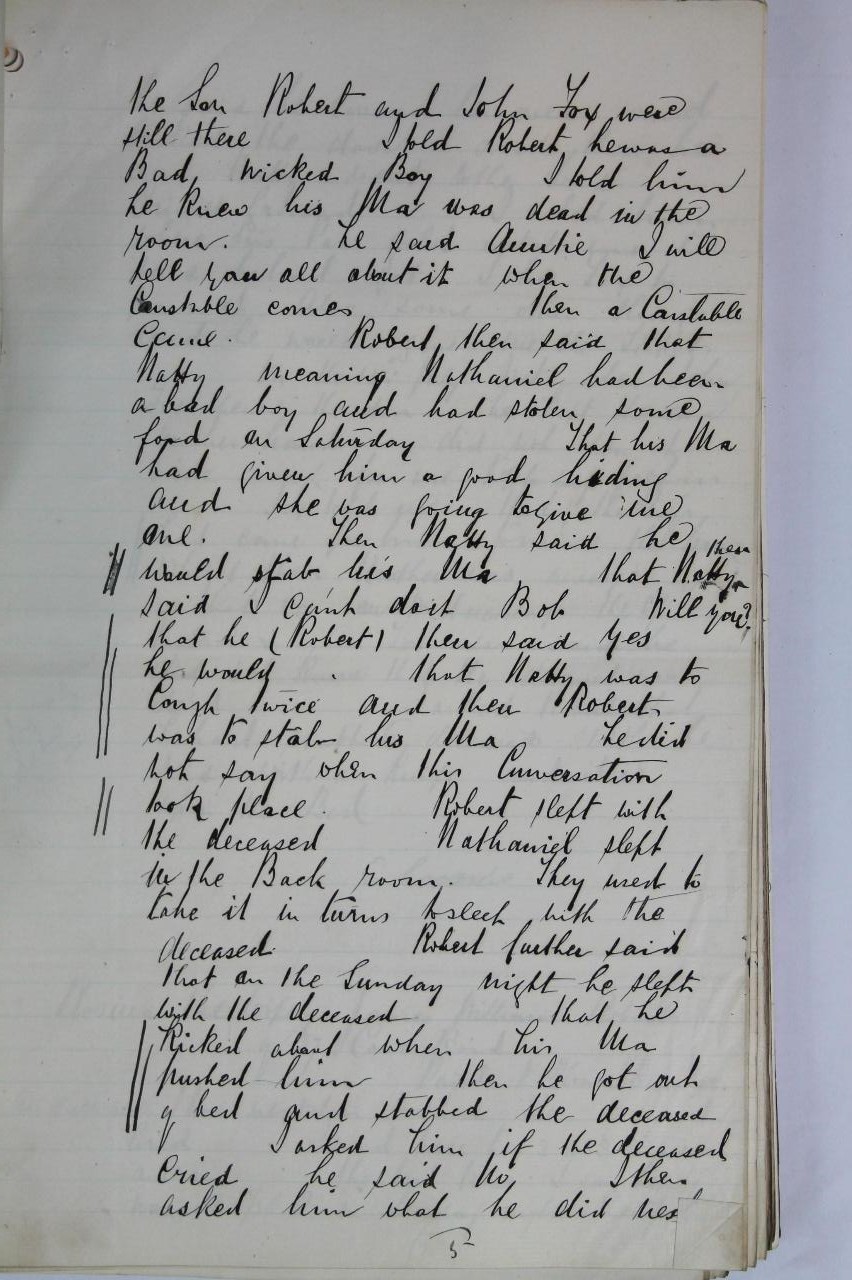 the Son Robert and John Fox were
still there I told Robert he was a
Bad wicked Boy I told him
he knew his Ma was dead in the
room. he said Auntie I will
tell you all about it when the
Constable comes then a Constable
Came. Robert then said that
Natty meaning Nathaniel had been
a bad boy and had stolen some
food on Saturday That his Ma
had given him a good hiding
and she was going to give me
one. Then Natty said he
would stab his Ma that Natty then
said I can't do it Bob Will you?
that he (Robert) then said yes
he would. that Natty was to
Cough twice and then Robert
was to stab his Ma he did
not say when this Conversation
took place. Robert slept with
the deceased Nathaniel slept
in the Back room. They used to
take it in turns to sleep with the
deceased. Robert further said
that on the Sunday night he slept
with the deceased that he
Kicked about when his Ma
pushed him then he got out
of bed and stabbed the deceased
I asked him if the deceased
Cried he said No I then
asked him what he did nex
5